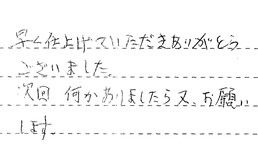 早く仕上げていただきありがとう
ございました。
次回 何かありましたら又、お願い
します